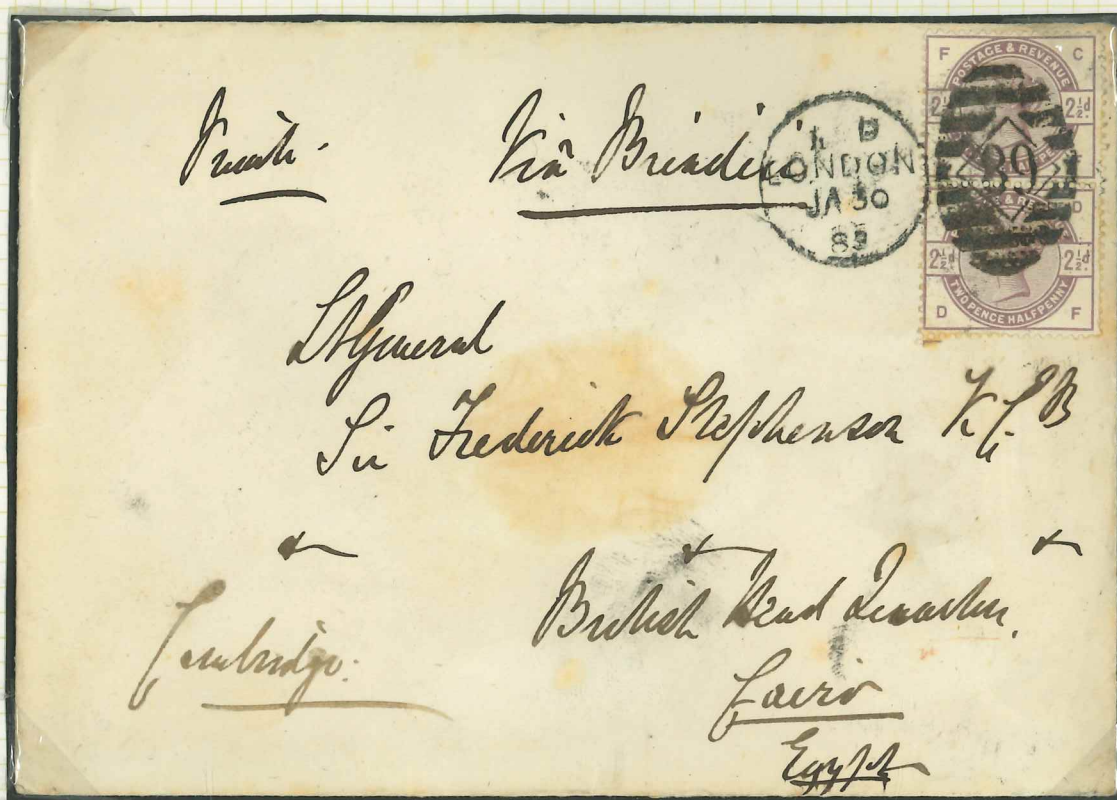 Private.
Via Brindisi
LONDON
JA 30
F C
POSTAGE & REVENUE
2½d
89
D
2½d 2½d
TWO PENCE HALFPENNY
D F
Lt General
Sir Frederick Stephenson K.C.B
British Head Quarters.
Cambridge.
Cairo
Egypt